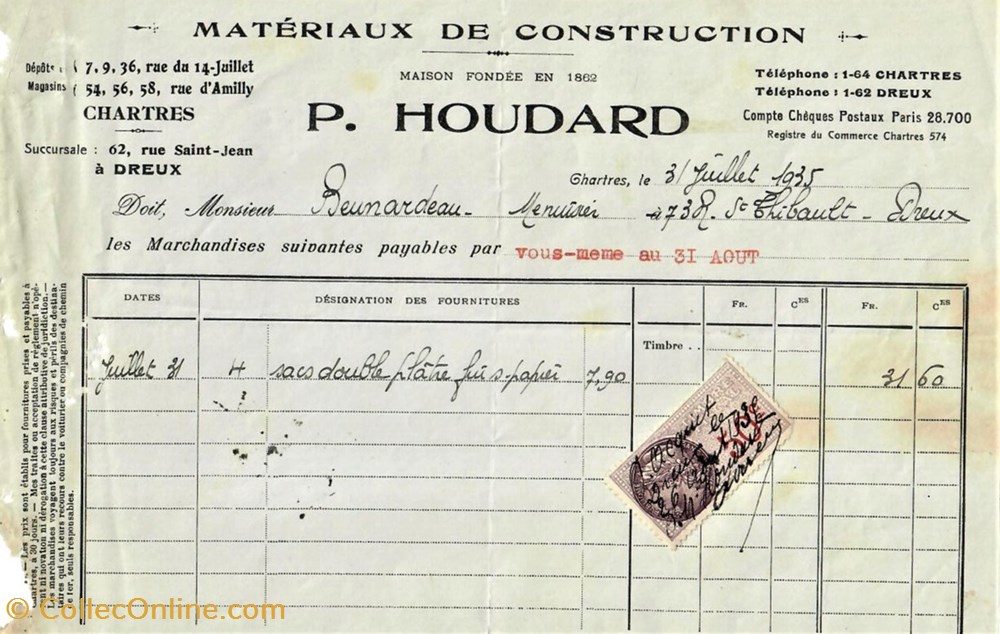 MATÉRIAUX DE CONSTRUCTION
MAISON FONDÉE EN 1862
P. HOUDARD
Dépôts 7, 9, 36, rue du 14-Juillet
Magasins 54, 56, 58, rue d'Amilly
CHARTRES
Succursale : 62, rue Saint-Jean
à DREUX
Téléphone : 1-64 CHARTRES
Téléphone : 1-62 DREUX
Compte Chèques Postaux Paris 28.700
Registre du Commerce Chartres 574
Chartres, le 31 Juillet 1935
Doit, Monsieur Beunardeau - Menuisier - à 73 R. St Thibault - Dreux
les Marchandises suivantes payables par vous-meme au 31 AOUT
DATES DÉSIGNATION DES FOURNITURES FR. CES FR. CES
Timbre . .
Juillet 31 4 sacs double plâtre fin s. papier 7,90 31 60
Les prix sont établis pour fournitures prises et payables à
Chartres, à 30 jours. — Mes traites ou acceptation de règlement n'opé-
rent ni novation ni dérogation à cette clause attributive de juridiction. —
Les marchandises voyagent toujours aux risques et périls des destina-
taires qui ont leurs recours contre le voiturier ou compagnies de chemin
de fer, seuls responsables.
© CollecOnline.com